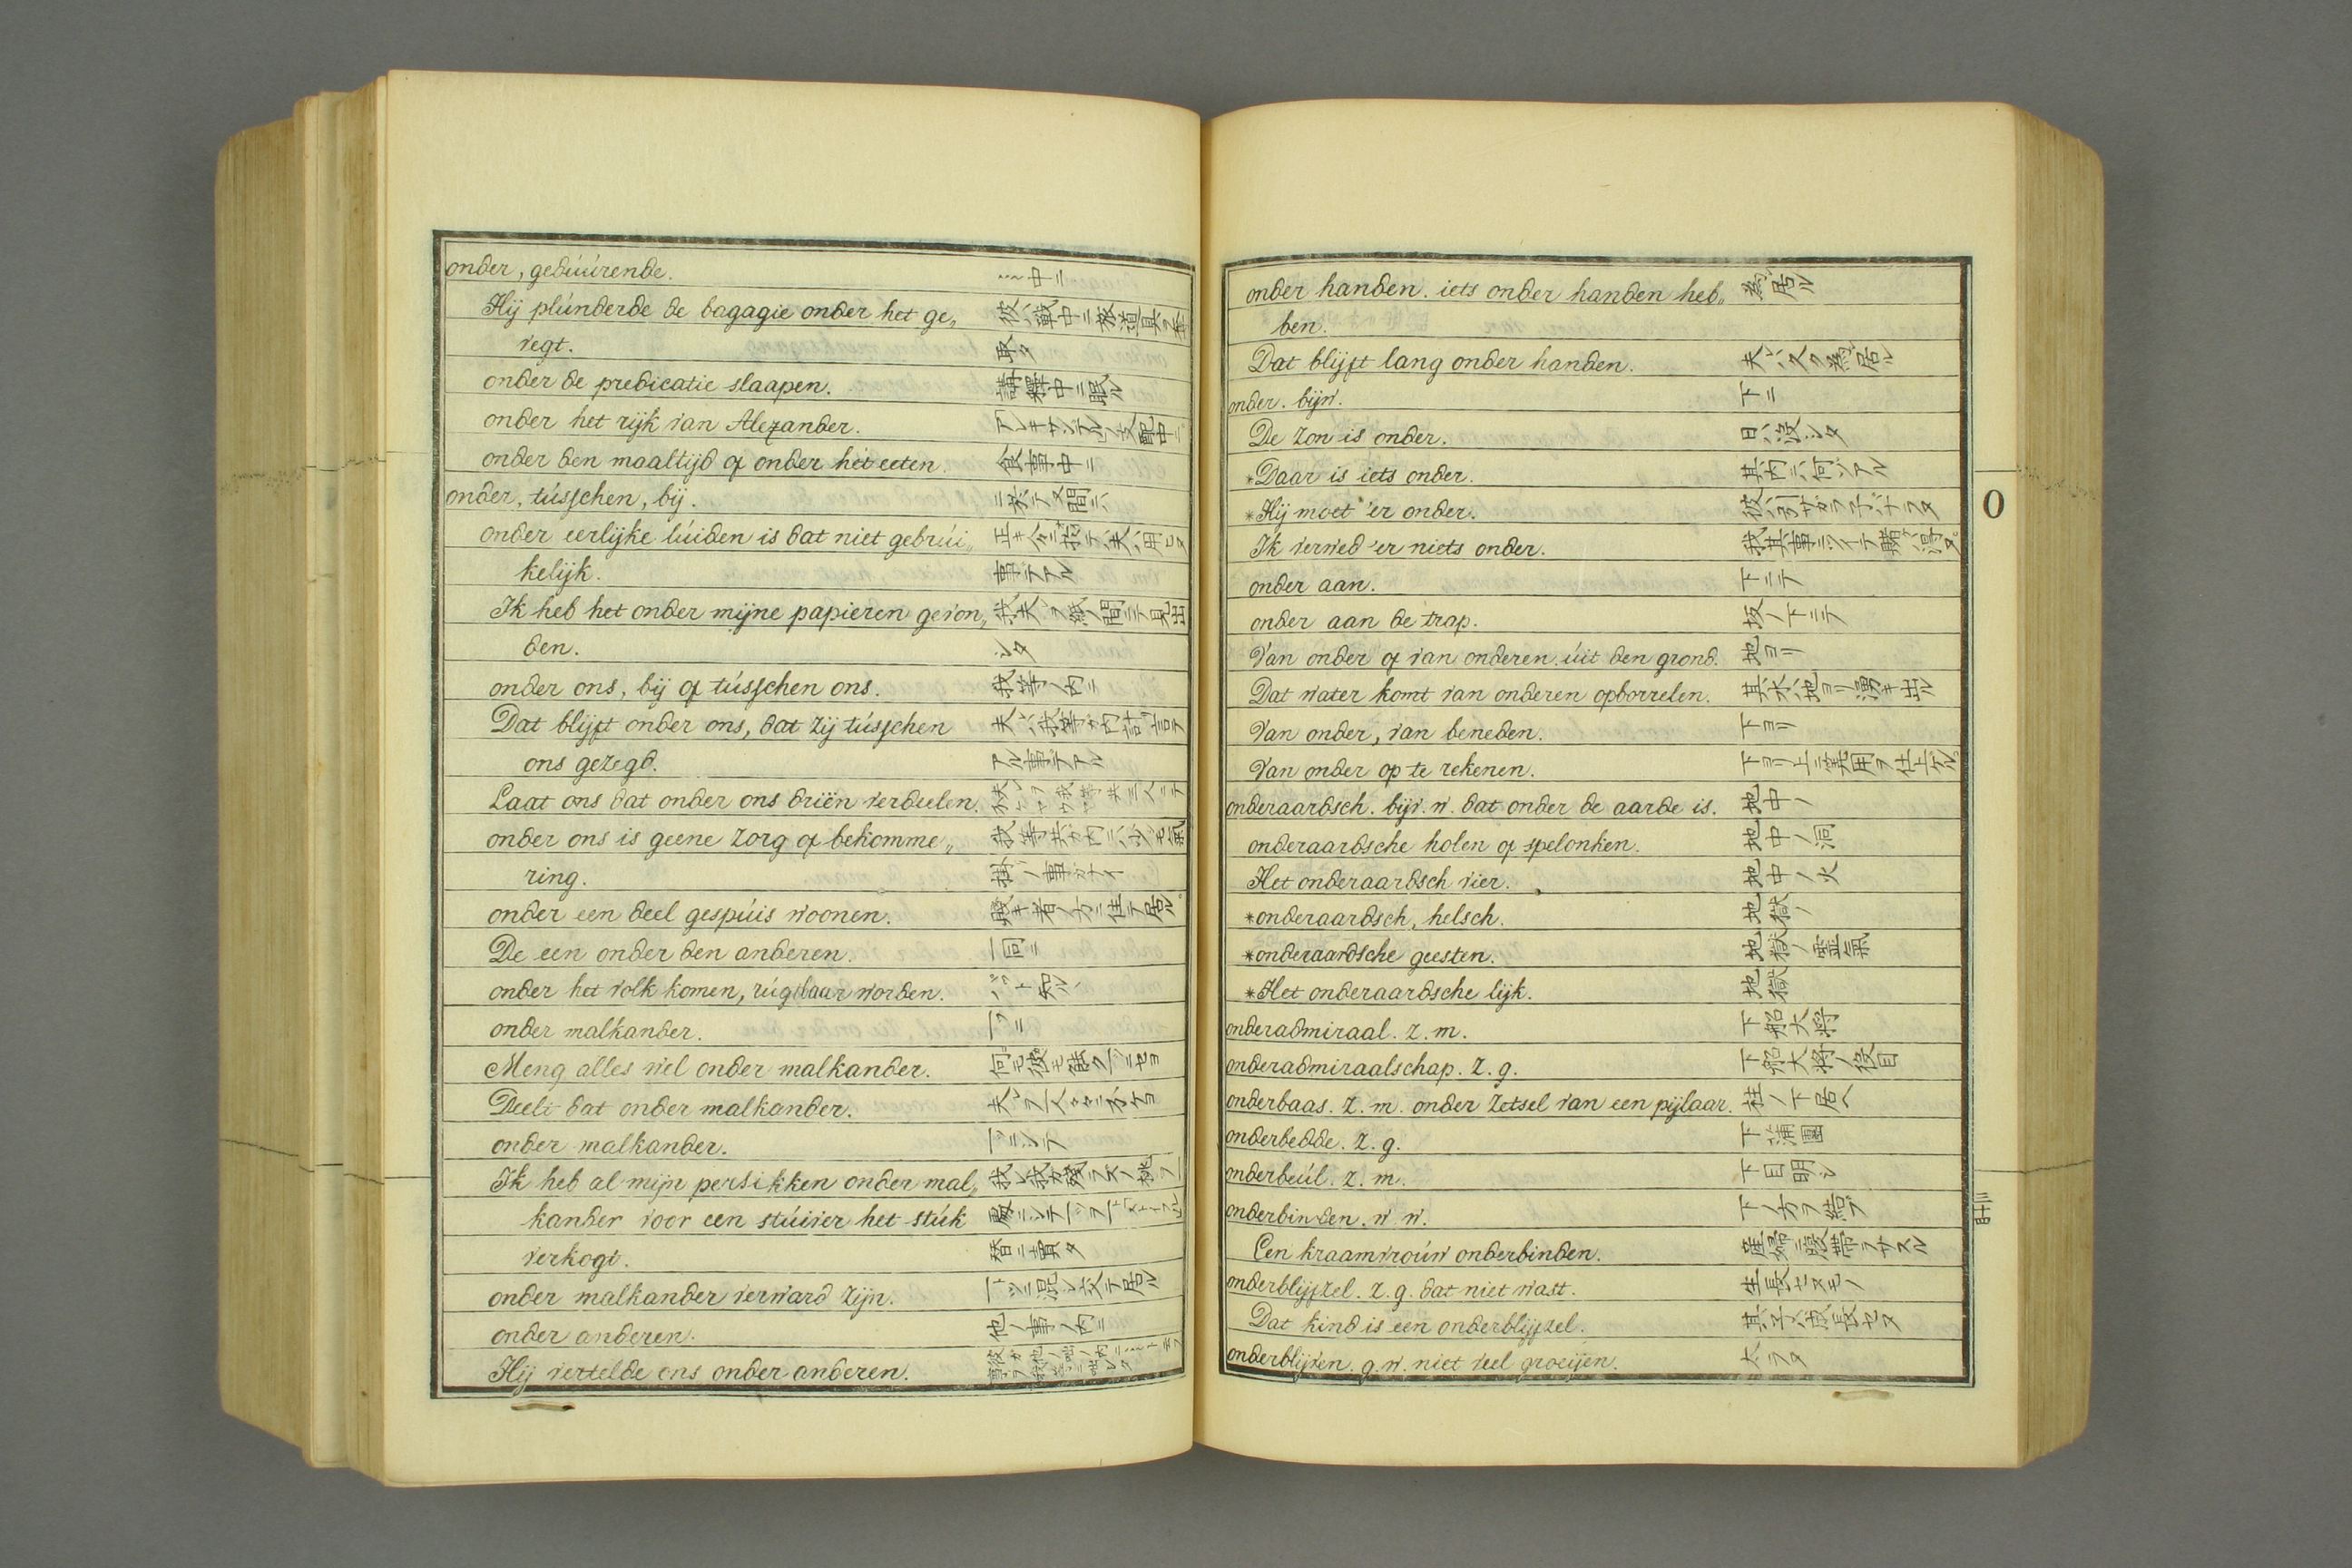 onder, gedúúrende. 〻中ニ
Hij plúnderde de bagagie onder het ge„ 彼ハ戦中ニ旅道具ヲ奪
vegt. 取タ
onder de predicatie slaapen. 講釋中ニ眠ル
onder het rijk van Alexander. アレキサンデルノ支配中ニ
onder den maaltijd of onder het eeten. 食事中ニ
onder, tússchen, bij.
onder eerlijke lúiden is dat niet gebrúi„
kelijk. 事デアル
Ik heb het onder mijne papieren gevon„ 我夫レヲ紙ノ間ニテ見出
den. シタ
onder ons, bij of tússchen ons. 我等ノ内ニ
Dat blijft onder ons, dat zij tússchen
ons gezegd. アル事デアル
Laat ons dat onder ons driën verdeelen.
onder ons is geene zorg of bekomme„
ring. 掛ノ事ガナイ
onder een deel gespúis woonen. 賤キ者ノ方ニ住テ居ル
De een onder den anderen. 一同ニ
onder het volk komen, rúgtbaar worden.
onder malkander. 一ツニ
Meng alles wel onder malkander.
Deelt dat onder malkander.
onder malkander. 一ツニシテ
Ik heb al mijn persikken onder mal„
kander voor een stúiver het stúk
verkogt. 替ニ賣タ
onder malkander verward zijn.
onder anderen. 他ノ事ノ内ニ
Hij vertelde ons onder anderen.
onder handen. iets onder handen heb„ 為居ル
ben.
Dat blijft lang onder handen. 夫レハ久ク為居ル
onder. bijw. 下ニ
De zon is onder. 日ハ没シタ
*Daar is iets onder. 其内ニ何ゾアル
*Hij moet 'er onder.
Ik verwed 'er niets onder.
onder aan. 下ニテ
onder aan de trap. 坂ノ下ニテ
Van onder of van onderen. úit den grond. 地ヨリ
Dat water komt van onderen opborrelen. 其水ハ地ヨリ湧キ出ル
Van onder, van beneden. 下ヨリ
Van onder op te rekenen. 下ヨリ上ニ算用ヲ仕上ケル
onderaardsch. bijv. w. dat onder de aarde is. 地中ノ
onderaardsche holen of spelonken. 地中ノ洞
Het onderaardsch vier. 地中ノ火
*onderaardsch, helsch. 地獄ノ
*onderaardsche geesten. 地獄ノ靈氣
*Het onderaardsche lijk. 地獄
onderadmiraal. z. m. 下船大将
onderadmiraalschap. z. g. 下船大将ノ役目
onderbaas. z. m. onder zetsel van een pijlaar. 柱ノ下居へ
onderbedde. z. g. 下蒲團
onderbeúl. z. m. 下目明シ
onderbinden. w. w. 下ノ方ヲ結ブ
Een kraamvroúw onderbinden. 産婦ニ腹帯ヲサスル
onderblijfzel. z. g. dat niet wast. 生長セヌモノ
Dat kind is een onderblijfzel. 其子ハ成長セヌ
onderblijven. g. w. niet veel groeijen. 太ラヌ
O